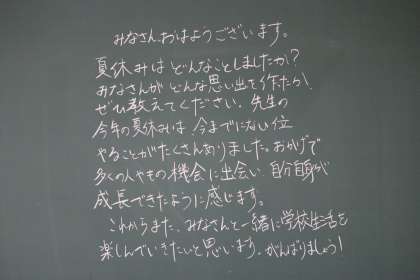 みなさん、おはようございます。
夏休みは どんなことしましたか?
みなさんが どんな思い出を作ったか、
ぜひ教えてください。先生の
今年の夏休みは 今までにない位
やることがたくさんありました。おかげで
多くの人やもの 機会に出会い 自分自身が
成長できたように感じます。
これからまた、みなさんと一緒に学校生活を
楽しんでいきたいと思います。がんばりましょう!